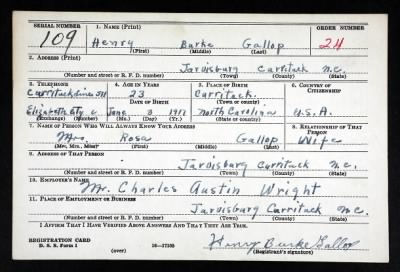 SERIAL NUMBER 1. NAME (Print) ORDER NUMBER
109 Henry Burke Gallop 24
(First) (Middle) (Last)
2. ADDRESS (Print)
Jarvisburg Currituck N.C.
(Number and street or R. F. D. number) (Town) (County) (State)
3. TELEPHONE 4. AGE IN YEARS 5. PLACE OF BIRTH 6. COUNTRY OF CITIZENSHIP
23 Currituck
DATE OF BIRTH (Town or county)
Elizabeth City June 3 1917 North Carolina U.S.A.
(Exchange) (Number) (Mo.) (Day) (Yr.) (State or country)
7. NAME OF PERSON WHO WILL ALWAYS KNOW YOUR ADDRESS 8. RELATIONSHIP OF THAT PERSON
Mrs. Rosa Gallop Wife
(Mr., Mrs., Miss) (First) (Middle) (Last)
9. ADDRESS OF THAT PERSON
Jarvisburg Currituck N.C.
(Number and street or R. F. D. number) (Town) (County) (State)
10. EMPLOYER'S NAME
Mr. Charles Austin Wright
11. PLACE OF EMPLOYMENT OR BUSINESS
Jarvisburg Currituck N.C.
(Number and street or R. F. D. number) (Town) (County) (State)
I AFFIRM THAT I HAVE VERIFIED ABOVE ANSWERS AND THAT THEY ARE TRUE.
REGISTRATION CARD
D. S. S. Form 1 (over) 16—17105 Henry Burke Gallop
(Registrant's signature)